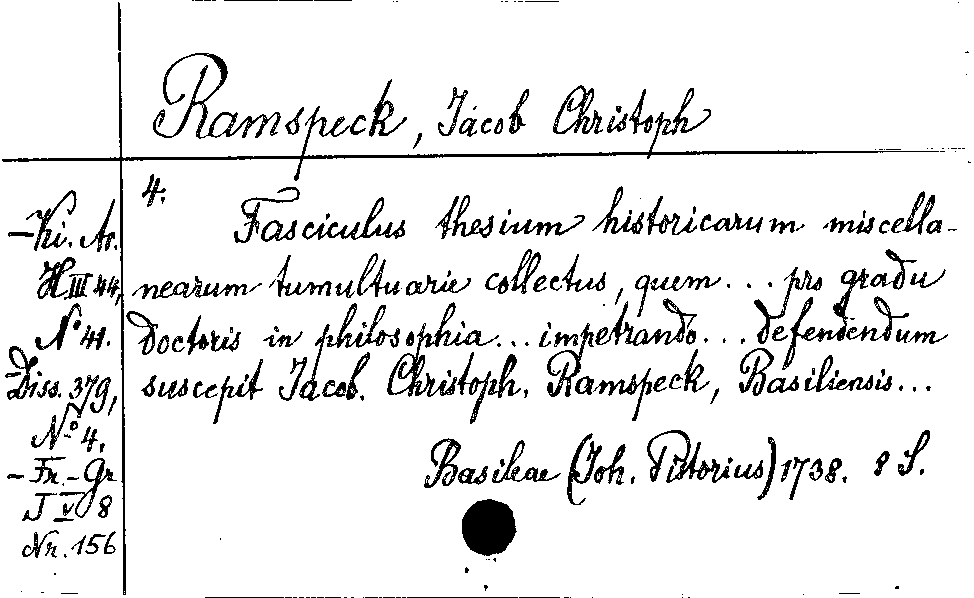 Ramspeck, Jacob Christoph
4.
Fasciculus thesium historicarum miscella-
nearum tumultuarie collectus, quem... pro gradu
doctoris in philosophia... impetrando... defendendum
suscepit Jacob. Christoph. Ramspeck, Basiliensis...
Basileae (Joh. Pistorius) 1738. 8 S.
- Ki. Ar.
H III 44,
No 41.
Diss. 379,
No 4.
- Fr.-Gr
J V 8
Nr. 156